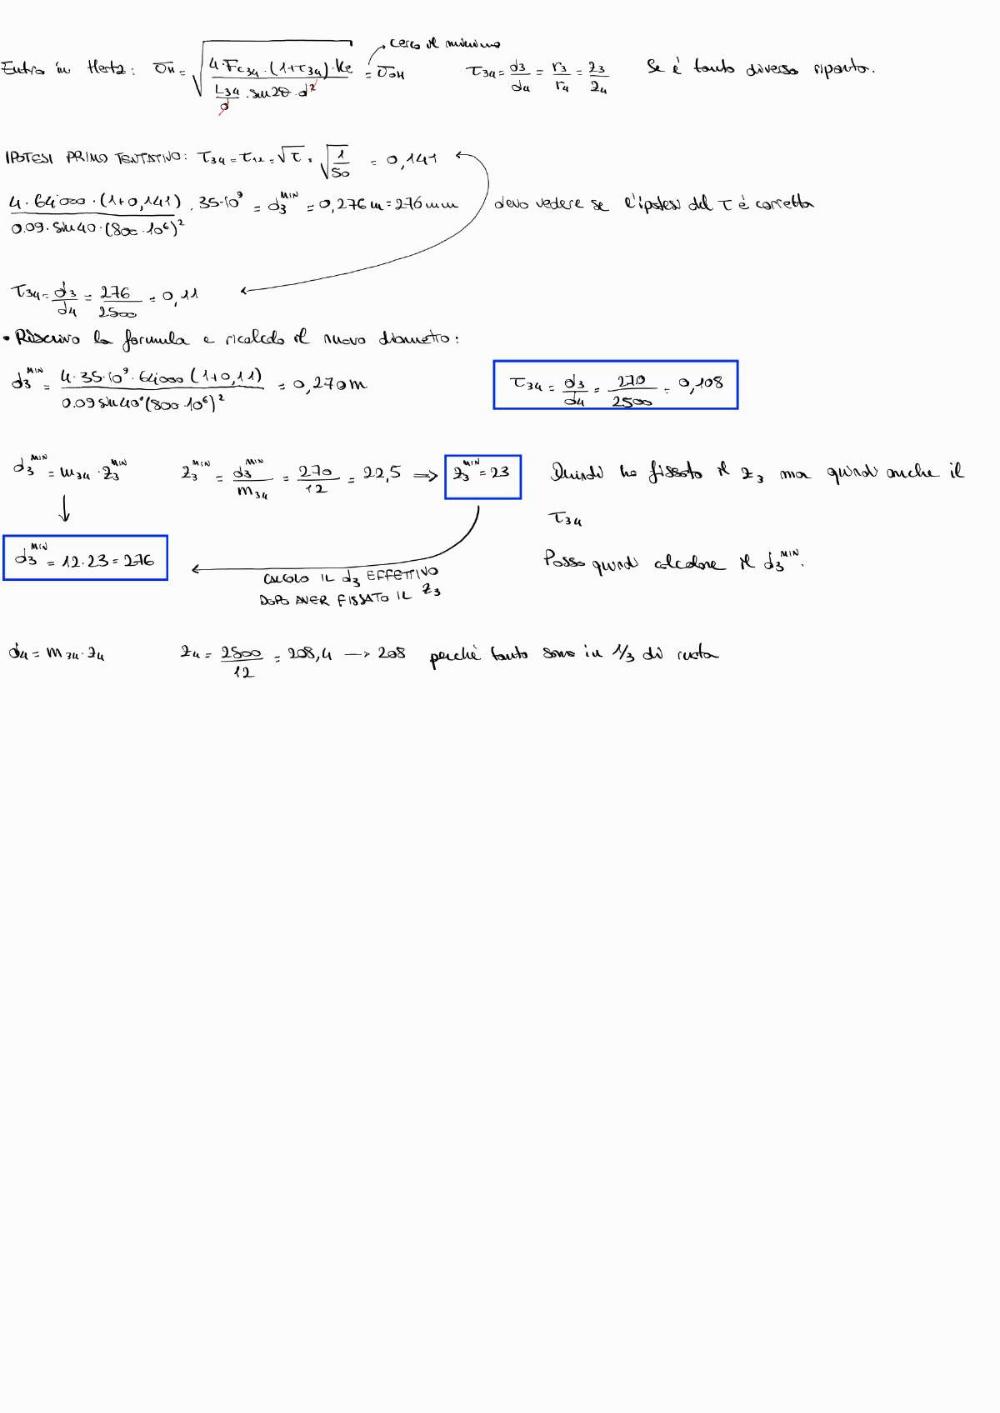 Entro in Hertz: σH = √(4·Fc34·(1+τ34)·Ke / (L34/d · sin2θ · d²)) = σOH cerco il minimo τ34 = d3/d4 = r3/r4 = z3/z4 Se è tanto diverso riparto.
IPOTESI PRIMO TENTATIVO: τ34 = τ12 = √τ = √(1/50) = 0,141
4·64000·(1+0,141)/(0.09·sin40·(800·10⁶)²) · 35·10⁹ = d3^MIN = 0,276 m = 276 mm devo vedere se l'ipotesi del τ è corretta
τ34 = d3/d4 = 276/2500 = 0,11
• Riscrivo la formula e ricalcolo il nuovo diametro:
d3^MIN = 4·35·10⁹·64000(1+0,11)/(0.09 sin40°(800·10⁶)²) = 0,270 m τ34 = d3/d4 = 270/2500 = 0,108
d3^MIN = m34·z3^MIN z3^MIN = d3^MIN/m34 = 270/12 = 22,5 ⇒ z3^MIN = 23 Quindi ho fissato il z3 ma quindi anche il
τ34
d3^MIN = 12·23 = 276 Posso quindi calcolare il d3^MIN.
CALCOLO IL d3 EFFETTIVO
DOPO AVER FISSATO IL z3
d4 = m34·z4 z4 = 2500/12 = 208,4 → 208 perchè tanto sono in 1/3 di ruota